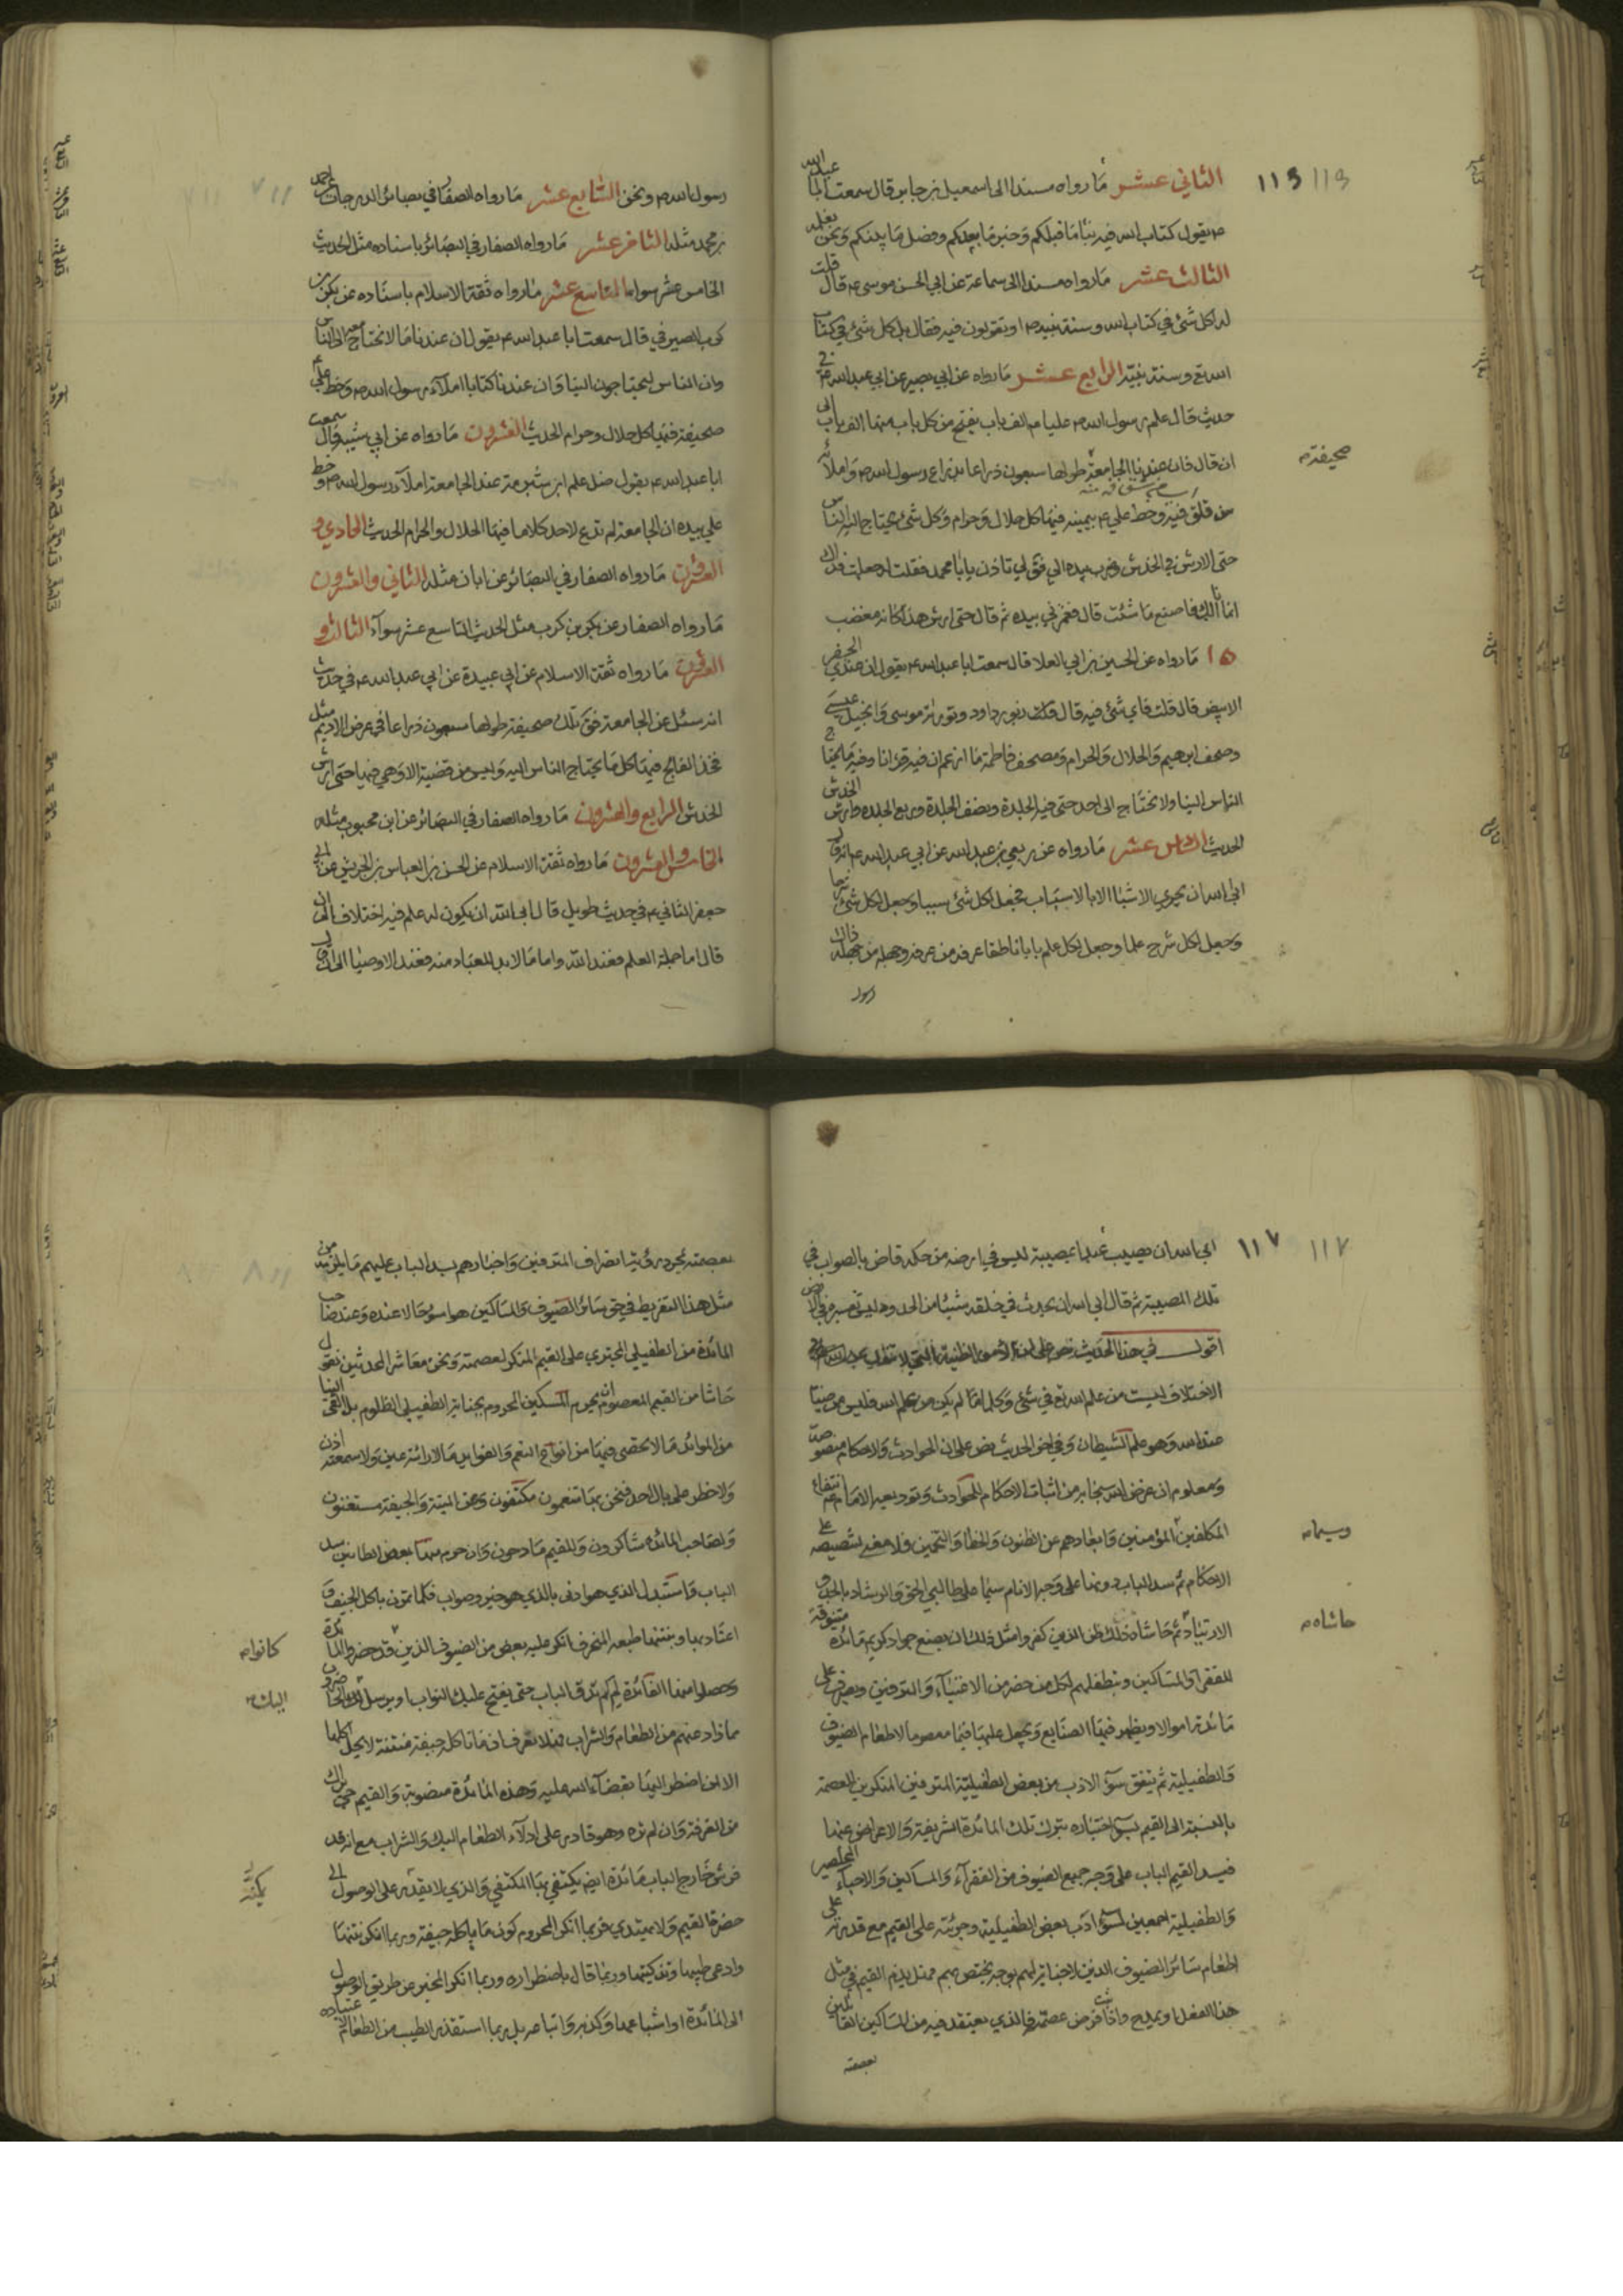 الثاني عشر ما رواه مسندا الى اسمعيل بن جابر قال سمعت ابا عبد الله
ص يقول كتاب الله فيه نبأ ما قبلكم وخبر ما بعدكم وفصل ما بينكم ونحن نعلمه
الثالث عشر ما رواه مسندا الى سماعة عن ابي الحسن موسى ع قال قلت
له اكل شئ في كتاب الله وسنة نبيه ص او تقولون فيه فقال بل كل شئ في كتاب
الله تع وسنة نبيه الرابع عشر ما رواه عن ابي بصير عن ابي عبد الله ع في
حديث قال علم رسول الله ص عليا ع الف باب يفتح من كل باب منها الف باب الى
ان قال فان عندنا الجامعة طولها سبعون ذراعا بذراع رسول الله ص واملائه
صحيفة
من فلق فيه وخط علي ع بيمينه فيها كل حلال وحرام وكل شئ يحتاج اليه الناس
حتى الارش في الخدش وضرب بيده الي فق لي تاذن يا ابا محمد فقلت له جعلت فداك
انما انا لك فاصنع ما شئت قال فغمزني بيده ثم قال حتى ارش هذا كانه مغضب
١٥ ما رواه عن الحسين بن ابي العلا قال سمعت ابا عبد الله ع يقول ان عندي الجفر
الابيض قال قلت فاي شئ فيه قال زبور داود وتورية موسى وانجيل عيسى
وصحف ابرهيم والحلال والحرام ومصحف فاطمة ما ازعم ان فيه قرانا وفيه ما يحتاج
الناس الينا ولا نحتاج الى احد حتى فيه الجلدة ونصف الجلدة وربع الجلده وارش الخدش
الحديث السادس عشر ما رواه عن ربعي بن عبد الله عن ابي عبد الله ع انه قال
ابى الله ان يجري الاشيا الا بالاسباب فجعل لكل شئ سببا وجعل لكل شئ شرحا
وجعل لكل شرح علما وجعل لكل علم بابا ناطقا عرفه من عرفه وجهله من جهله ذاك
رسول
رسول الله ص ونحن السابع عشر ما رواه الصفار في بصائر الدرجات عن احمد
بن محمد مثله الثامن عشر ما رواه الصفار في البصائر باسناده مثل الحديث
الخامس عشر سواء التاسع عشر ما رواه ثقة الاسلام باسناده عن بكر بن
كرب الصيرفي قال سمعت ابا عبد الله ع يقول ان عندنا ما لا نحتاج معه الى الناس
وان الناس ليحتاجون الينا وان عندنا كتابا املاء رسول الله ص وخط علي ع
صحيفة فيها كل حلال وحرام الحديث العشرون ما رواه عن ابي شيبة قال سمعت
ابا عبد الله ع يقول ضل علم ابن شبرمة عند الجامعة املاء رسول الله ص وخط
علي بيده ان الجامعة لم تدع لاحد كلاما فيها الحلال والحرام الحديث الحادي و
العشرون ما رواه الصفار في البصائر عن ابان مثله الثاني والعشرون
ما رواه الصفار عن بكر بن كرب مثل الحديث التاسع عشر سواء الثالث و
العشرون ما رواه ثقة الاسلام عن ابي عبيدة عن ابي عبد الله ع في حديث
انه سئل عن الجامعة فق تلك صحيفة طولها سبعون ذراعا في عرض الاديم مثل
فخذ الفالج فيها كل ما يحتاج الناس اليه وليس من قضية الا وهي فيها حتى ارش
الخدش الرابع والعشرون ما رواه الصفار في البصائر عن ابن محبوب مثله
الخامس والعشرون ما رواه ثقة الاسلام عن الحسن بن العباس بن الحريش عن ابي
جعفر الثاني ع في حديث طويل قال ابى الله ان يكون له علم فيه اختلاف الى ان
قال اما جملة العلم فعند الله واما ما لا بد للعباد منه فعند الاوصيا الى ان قال
١١٧
ابى الله ان يصيب عبدا بمصيبة ليس في ارضه من حكمه قاض بالصواب في
تلك المصيبة ثم قال ابى الله ان يحدث في خلقه شيئا من الحدود ليس تفسيره في الارض
اقول في هذا الحديث نص على ان الامور الظنية التي لا تنفك عن
الاختلاف ليست من علم الله تع في شئ وكلما لم يكن من علم الله فليس مرضيا
عند الله وهو علم الشيطان وفي اخر الحديث نص على ان الحوادث والاحكام منصوصة
ومعلوم ان غرض الله سبحانه من اثبات الاحكام للحوادث وتوديعه الامام ع انتفاع
المكلفين المؤمنين وابعادهم عن الظنون والخطا والتخمين فلا معنى لتنصيصه على
وسيما
الاحكام ثم سد الباب دونها على وجه الانام سيما على طالبي الحق والرشاد بالجد و
الارتياد ثم حاشاه ذلك ظن الذين كفروا مثل ذلك ان يصنع جواد كريم مائدة متنوقة
حاشاه
للفقرا والمساكين وتطفلهم اكل من حضر من الاغنياء والمترفين ويصرف على
مائدته اموالا ويظهر فيها الصنايع ويجعل عليها قيما معصوما لاطعام الضيوف
والطفيلية ثم يتفق سوء الادب من بعض الطفيلية المترفين المنكرين للعصمة
بالنسبة الى القيم بسوء اختياره بترك تلك المائدة الشريفة والاعراض عنها
فيسد القيم الباب على وجه جميع الضيوف من الفقراء والمساكين والاحباء المخلصين
والطفيلية اجمعين لسوء ادب بعض الطفيلية وجرئته على القيم مع قدرته على
اطعام سائر الضيوف الذين لا جناية لهم بوجه يختص بهم فهل يذم القيم في مثل
هذا الفعل او يمدح واذا فرض عصمته فالذي يعتقد فيه من المساكين القائلين
بعصمته
بعصمته بمجرد رؤية انصراف المترفين واختيارهم سد الباب عليهم ما يلزمه من
مثل هذا التفريط في حق سائر الضيوف والمساكين هو اسوء حالا عنده وعند صاحب
المائدة من الطفيلي المجتري على القيم المنكر لعصمته ونحن معاشر المحدثين نقول
حاشا من القيم المعصوم ان يحرم المسكين المحروم بجناية الطفيلي الظلوم بل القى الينا
من الموائد ما لا تحصى فيها من انواع النعم والفوايد ما لا رائة عين ولا سمعته اذن
ولا خطر على بال احد فنحن بما تنعمون مكتفون وعن الميتة والجيفة مستغنون
ولصاحب المائدة شاكرون وللقيم مادحون وان حرم منها بعض الظانين سد
الباب واستبدل الذي هو ادنى بالذي هو خير وصواب فكلما تمرن باكل الجيف و
اعتاد بها وبنتنها طبعه المنحرف انكر عليه بعض من الضيوف الذين قد حضروا المائدة
كانوا
وحصلوا منها الفائدة لم لم تدق الباب حتى يفتح عليك النواب او يرسل
اليك
مما زاد عنهم من الطعام والشراب فان ما تاكله جيفة منتنة لا يحل اكلها
الا لمن اضطر اليها بقضاء الله عليه وهذه المائدة منصوبة والقيم حي يراك
من الغرفة وان لم تره وهو قادر على ادلاء الطعام اليك والشراب مع انه قد
فرش خارج الباب مائدة ايضا يكتفي بها المكتفي والذي لا يقدر على الوصول الى
حضرة القيم ولا يهتدي فربما انكر المحروم كون ما ياكله جيفة وربما انكر نتنها
وادعى طيبها وتذكيتها وربما قال باضطراره وربما انكر المخبر عن طريق الوصول
الى المائدة او اشباعها وكذبه واتباعه بل ربما استقذر الطيب من الطعام لاعتياده